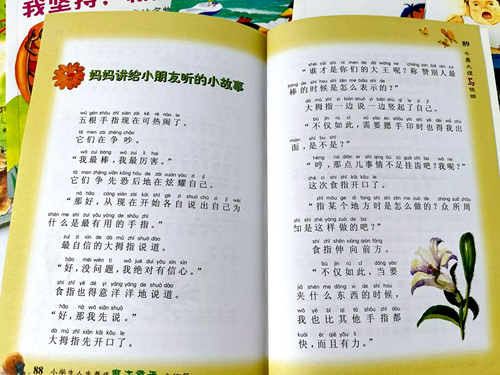 我坚持，
妈妈讲给小朋友听的小故事
wǔ gēn shǒu zhǐ xiàn zài kě rè nào le
五根手指现在可热闹了。
tā men zài zhēng chǎo
它们在争吵。
wǒ zuì bàng wǒ zuì lì hai
“我最棒，我最厉害。”
tā men zhēng xiān kǒng hòu de zài xuàn yào zì jǐ
它们争先恐后地在炫耀自己。
nà hǎo cóng xiàn zài kāi shǐ gè zì shuō chū zì jǐ wèi
“那好，从现在开始各自说出自己为
shén me shì zuì yǒu yòng de shǒu zhǐ
什么是最有用的手指。”
zuì zì xìn de dà mǔ zhǐ shuō dào
最自信的大拇指说道。
hǎo méi wèn tí wǒ jué duì yǒu xìn xīn
“好，没问题，我绝对有信心。”
shí zhǐ yě dé yì yáng yáng de shuō dào
食指也得意洋洋地说道。
hǎo nà wǒ xiān shuō
“好，那我先说。”
dà mǔ zhǐ xiān kāi kǒu le
大拇指先开口了。
88
小学生人生养成
89
“谁才是你们的大王呢？称赞别人最
棒的时候是怎么表示的？”
dà mǔ zhǐ yì biān shuō yì biān shù qǐ le zì jǐ
大拇指一边说一边竖起了自己。
“不仅如此，需要摁手印时也得我出
面，是不是？”
“哼，那点儿事情不足挂齿吧？我呢？”
zhè cì shí zhǐ kāi kǒu le
这次食指开口了。
“指某个地方时是怎么做的？众所周
zhī shì zhè yàng zuò de ba
知是这样做的吧？”
shí zhǐ shēn xiàng qián fāng
食指伸向前方。
bù jǐn rú cǐ dāng yào
“不仅如此，当要
jiā shén me dōng xi de shí hou
夹什么东西的时候，
wǒ yě bǐ qí tā shǒu zhǐ dōu
我也比其他手指都
kuài ér qiě yǒu lì
快，而且有力。”